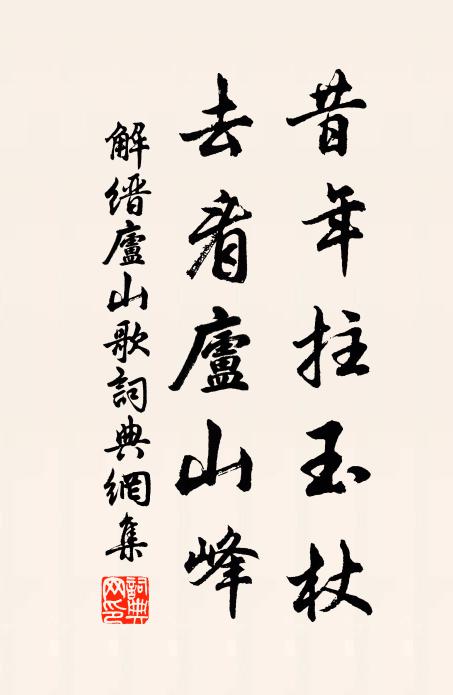 昔年拄玉杖
去看廬山峰
解缙廬山歌詞典網集
詞典
网印